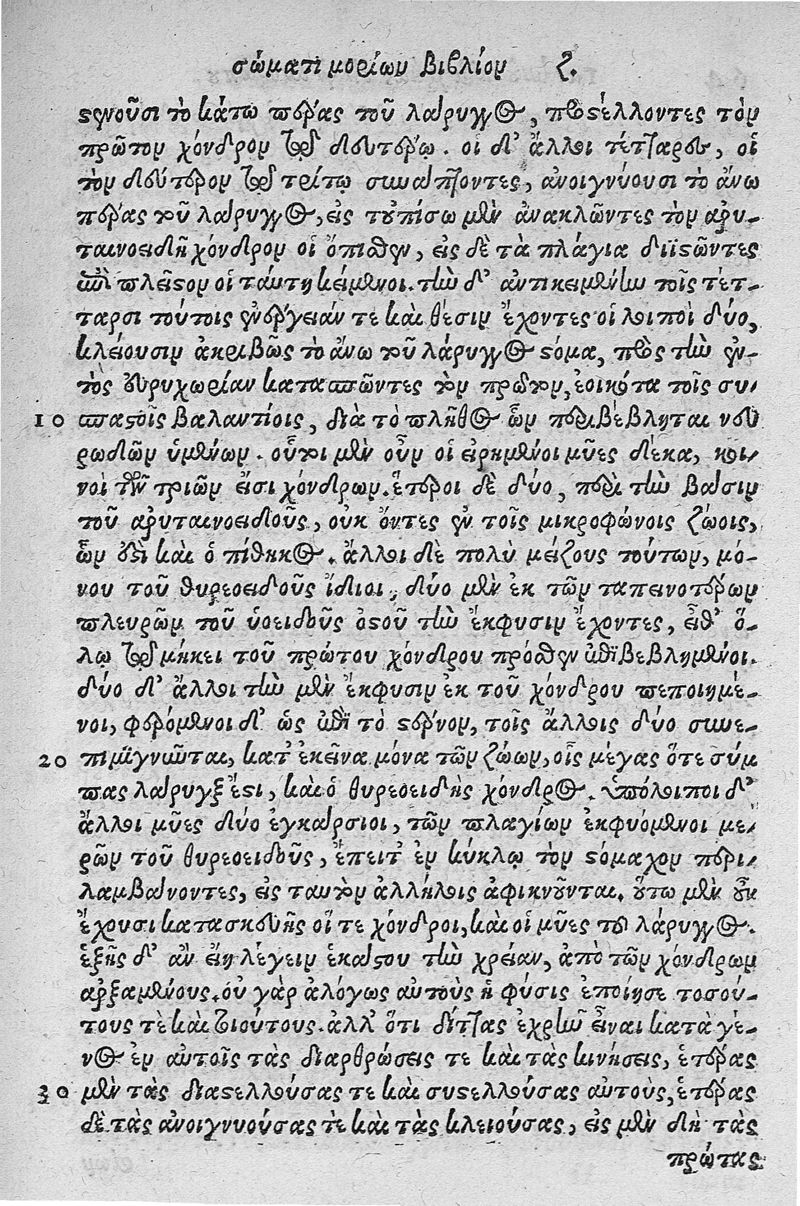 σώματι μορίων βιβλίον ζ.
στενοῦσι τὸ κάτω πέρας τοῦ λαρυγγος, προστέλλοντες τὸν
πρῶτον χόνδρον τῷ δευτέρῳ. οἱ δ' ἄλλοι τέτταρες, οἱ
τὸν δεύτερον τῷ τρίτῳ συνάπτοντες, ἀνοιγνύουσι τὸ ἄνω
πέρας τοῦ λαρυγγος, εἰς τοὐπίσω μὲν ἀνακλῶντες τὸν ἀρυ-
ταινοειδῆ χόνδρον οἱ ὄπισθεν, εἰς δὲ τὰ πλάγια διϊστῶντες
ἐπὶ πλεῖστον οἱ ταύτῃ κείμενοι. τὴν δ' ἀντικειμένην τοῖς τέτ-
ταρσι τούτοις ἐνέργειάν τε καὶ θέσιν ἔχοντες οἱ λοιποὶ δύο,
κλείουσιν ἀκριβῶς τὸ ἄνω τοῦ λάρυγγος στόμα, πρὸς τὴν ἐν-
τὸς εὐρυχωρίαν κατασπῶντες τὸν πρῶτον, ἐοικότα τοῖς συ-
10 σπαστοῖς βαλαντίοις, διὰ τὸ πλῆθος ὧν περιβέβληται νευ
ρωδῶν ὑμένων. οὗτοι μὲν οὖν οἱ εἰρημένοι μῦες δέκα, κοι-
νοὶ τῶν τριῶν εἰσι χόνδρων. ἕτεροι δὲ δύο, περὶ τὴν βάσιν
τοῦ ἀρυταινοειδοῦς, οὐκ ὄντες ἐν τοῖς μικροφώνοις ζώοις,
ὧν ἐστι καὶ ὁ πίθηκος. ἄλλοι δὲ πολὺ μείζους τούτων, μό-
νου τοῦ θυρεοειδοῦς ἴδιοι, δύο μὲν ἐκ τῶν ταπεινοτέρων
πλευρῶν τοῦ ὑοειδοῦς ὀστοῦ τὴν ἔκφυσιν ἔχοντες, εἶθ' ὅ-
λῳ τῷ μήκει τοῦ πρώτου χόνδρου πρόσθεν ἐπιβεβλημένοι.
δύο δ' ἄλλοι τὴν μὲν ἔκφυσιν ἐκ τοῦ χόνδρου πεποιημέ-
νοι, φερόμενοι δ' ὡς ἐπὶ τὸ στέρνον, τοῖς ἄλλοις δύο συνε-
20 πιμίγνωνται, κατ' ἐκεῖνα μόνα τῶν ζώων, οἷς μέγας ὅτε σύμ
πας λαρυγξ ἐστι, καὶ ὁ θυρεοειδὴς χόνδρος. ὑπόλοιποι δ'
ἄλλοι μῦες δύο ἐγκάρσιοι, τῶν πλαγίων ἐκφυόμενοι με-
ρῶν τοῦ θυρεοειδοῦς, ἔπειτ' ἐν κύκλῳ τὸν στόμαχον περι-
λαμβάνοντες, εἰς ταυτὸν ἀλλήλοις ἀφικνοῦνται. οὕτω μὲν οὖν
ἔχουσι κατασκευῆς οἵ τε χόνδροι, καὶ οἱ μῦες τοῦ λάρυγγος.
ἑξῆς δ' ἂν εἴη λέγειν ἑκάστου τὴν χρείαν, ἀπὸ τῶν χόνδρων
ἀρξαμένους. οὐ γὰρ ἀλόγως αὐτοὺς ἡ φύσις ἐποίησε τοσού-
τους τὲ καὶ τοιούτους. ἀλλ' ὅτι δίττας ἐχρῆν εἶναι κατὰ γέ-
νος ἐν αὐτοῖς τὰς διαρθρώσεις τε καὶ τὰς κινήσεις, ἑτέρας
30 μὲν τὰς διαστελλούσας τε καὶ συστελλούσας αὐτοὺς, ἑτέρας
δὲ τὰς ἀνοιγνυούσας τὲ καὶ τὰς κλειούσας, εἰς μὲν δὴ τὰς
πρώτας